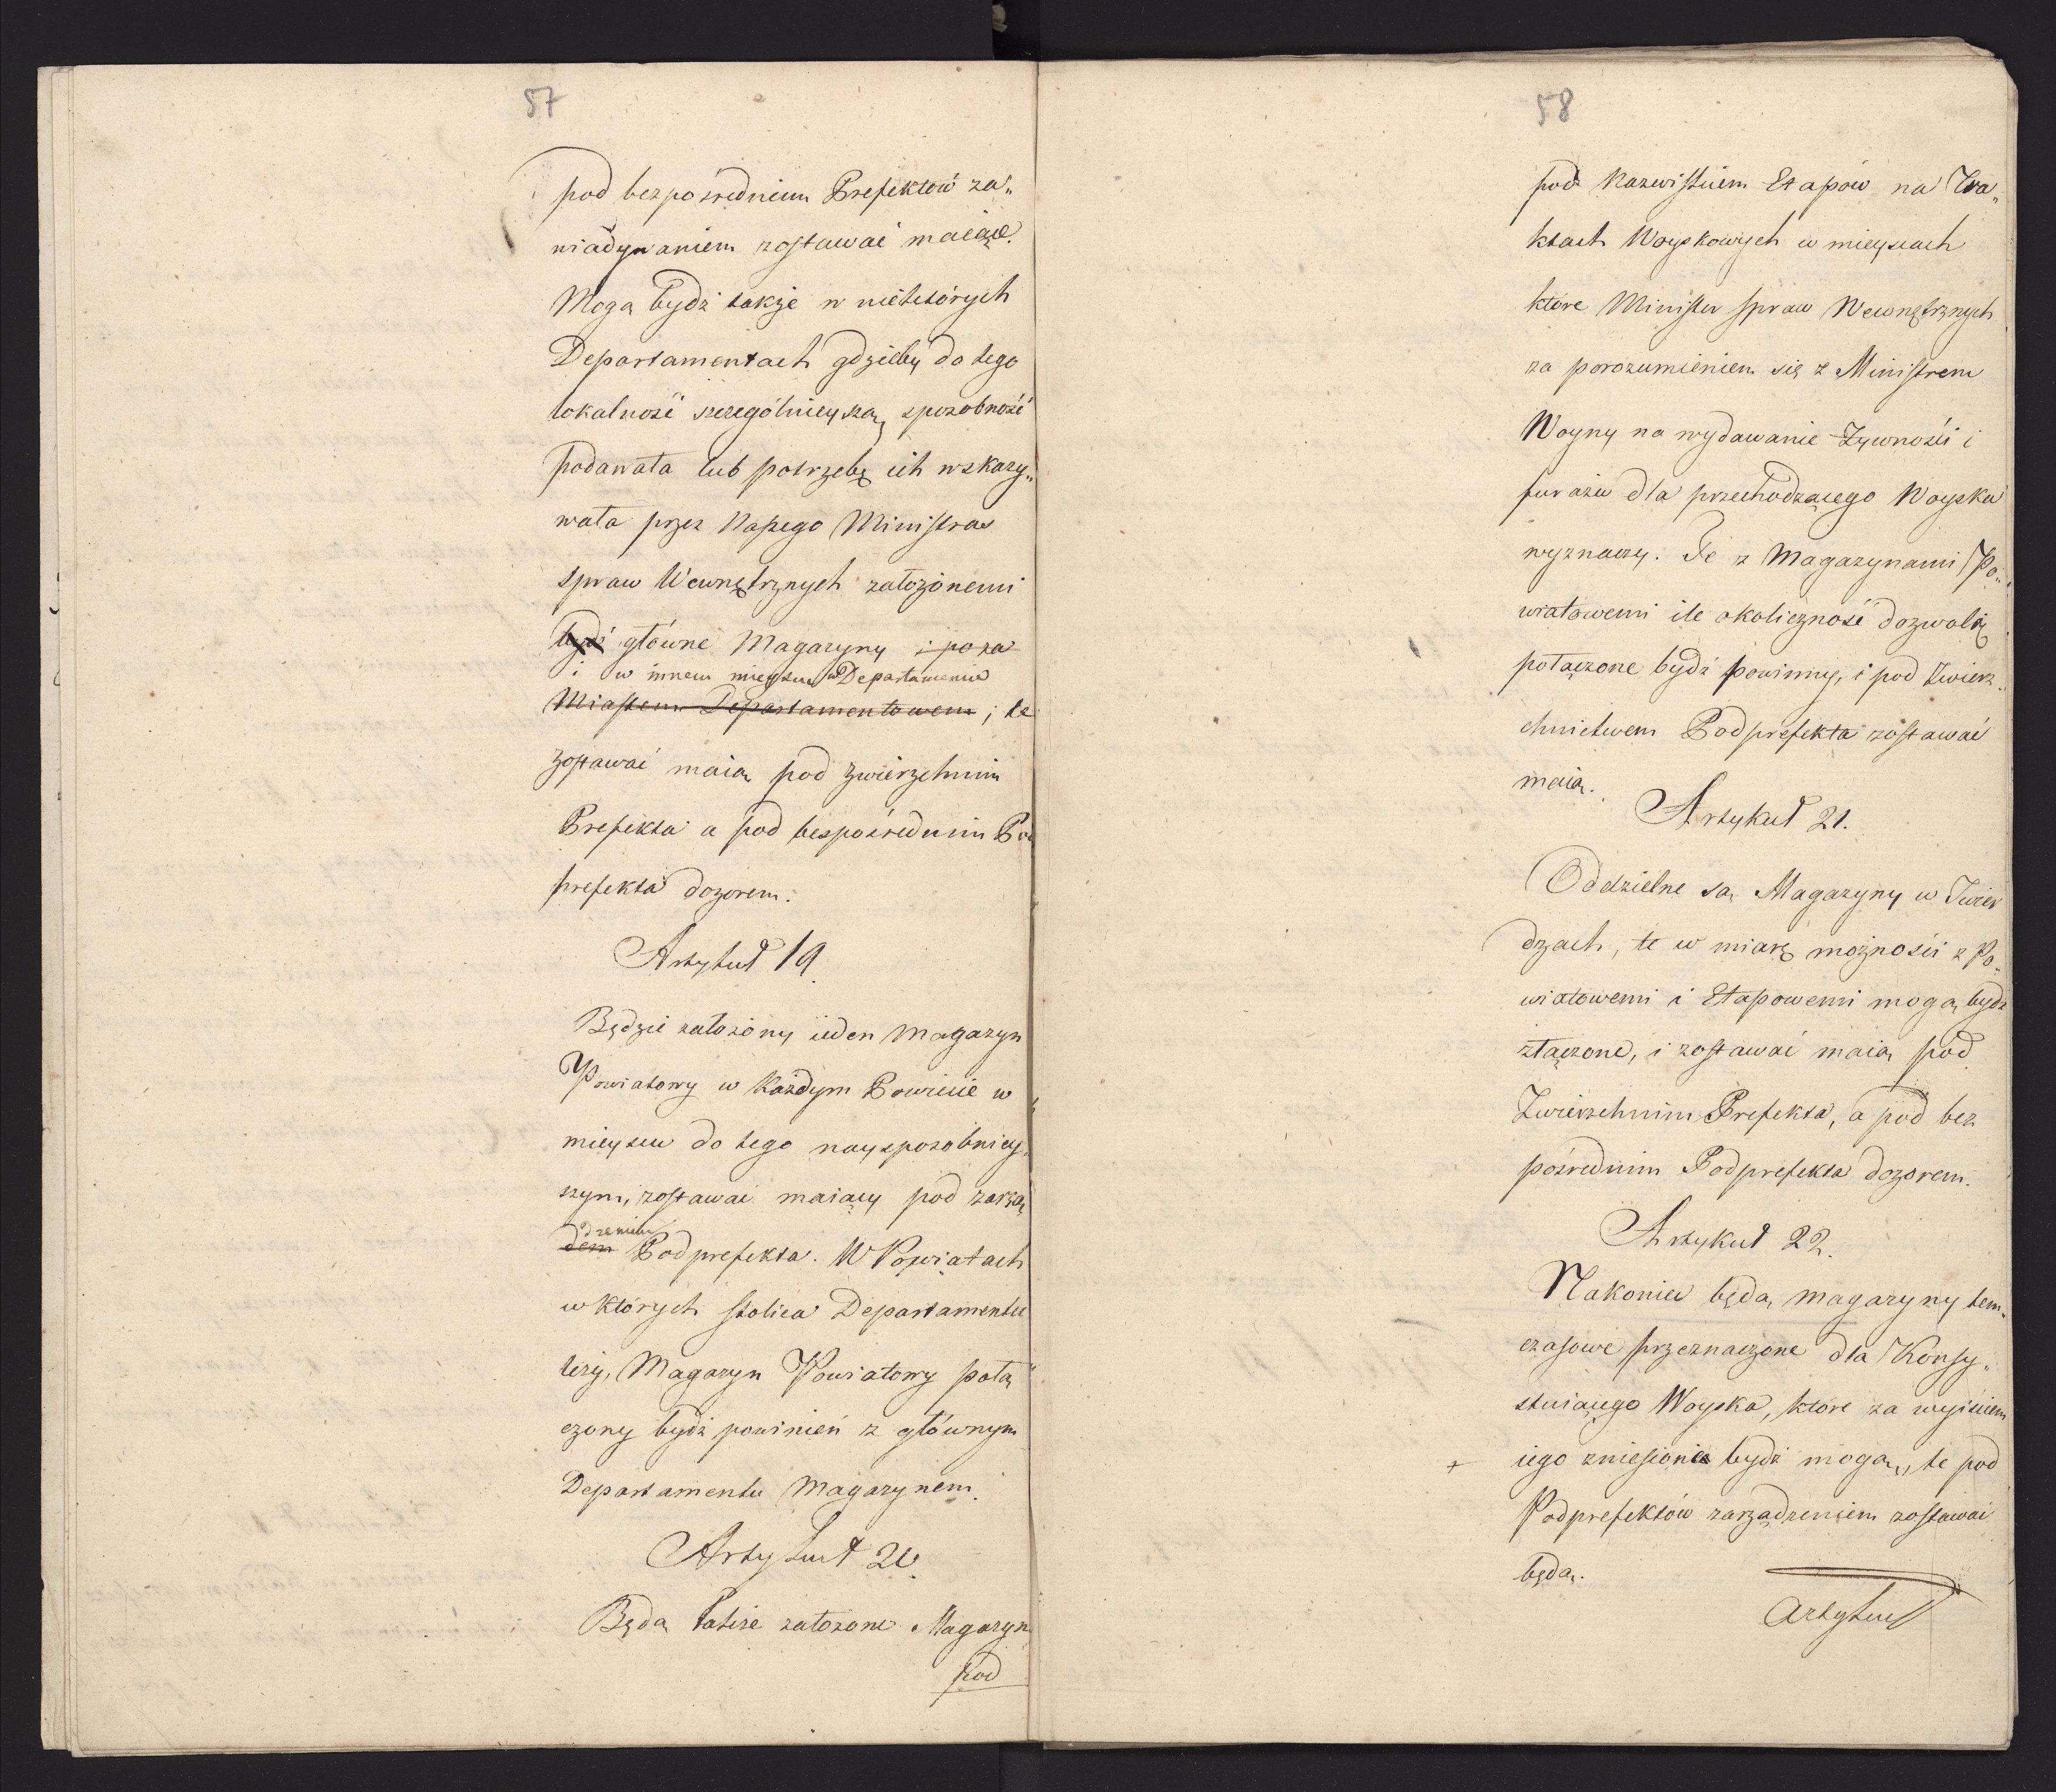 57
pod bezpośrednim Prefektów za„
wiadywaniem zostawać maiące.
Mogą bydź także w niektórych
Departamentach gdzieby do tego
lokalność szczególnieyszą sposobność
podawała lub potrzebę ich wskazy„
wała przez Naszego Ministra
spraw Wewnętrznych założonemi
bydź główne Magazyny i poza
i w innem mieyscu w Departamencie
Miastem Departamentowem; te
zostawać maią pod zwierzchnim
Prefekta a pod bespośrednim Pod
prefekta dozorem.
Artykuł 19.
Będzie założony ieden Magazyn
Powiatowy w Każdym Powiecie w
mieyscu do tego nayzposobniey„
szym, zostawać maiący pod zarzą
dzeniem
dem Podprefekta. W Powiatach
w których stolica Departamentu
leży, Magazyn Powiatowy połą„
czony bydź powinień z głównym
Departamentu Magazynem.
Artykuł 20.
Będą także założone Magazyn
pod
58
pod Nazwiskiem Etapów na Tra„
ktach Woyskowych w mieyscach
które Minister spraw Wewnętrznych
za porozumieniem się z Ministrem
Woyny na wydawanie Żywności i
furażu dla przechodzącego Woyska
wyznaczy. Te z Magazynami Po„
wiatowemi ile okoliczność dozwolą
połączone bydź powinny, i pod Zwierz„
chnictwem Podprefekta zostawać
maią.
Artykuł 21.
Oddzielne są Magazyny w Twier
dzach, te w miarę możności z Po„
wiatowemi i Etapowemi mogą bydź
złączone, i zostawać maią pod
Zwierzchnim Prefekta, a pod bez
pośrednim Podprefekta dozorem.
Artykuł 22.
Nakoniec będą magazyny tem„
czasowe przeznaczone dla Konsy„
stuiącego Woyska, które za wyiściem
+ iego zniesione bydź mogą, te pod
Podprefektów zarządzeniem zostawać
będą.
Artykuł